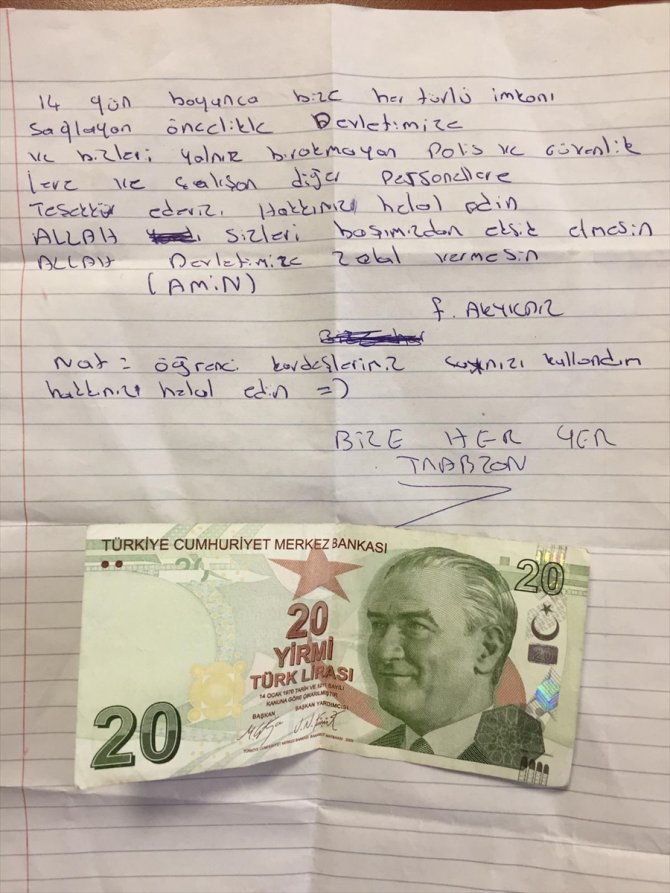 14 gün boyunca bize her türlü imkanı
Sağlayan öncelikle Devletimize
ve bizleri yalnız bırakmayan Polis ve Güvenlik
lere ve çalışan diğer Personellere
Teşekkür ederiz. Hakkınızı helal edin
ALLAH sizleri başımızdan eksik etmesin
ALLAH Devletimize zeval vermesin
(AMİN)
f. AKYILDIZ
Not = öğrenci kardeşlerimiz kullandım
hakkınızı helal edin =)
BİZE HER YER
TRABZON
TÜRKİYE CUMHURİYET MERKEZ BANKASI
20
20
YİRMİ
TÜRK LİRASI
14 OCAK 1970 TARİH VE 1211 SAYILI
KANUNA GÖRE ÇIKARILMIŞTIR
BAŞKAN BAŞKAN YARDIMCISI
20
20